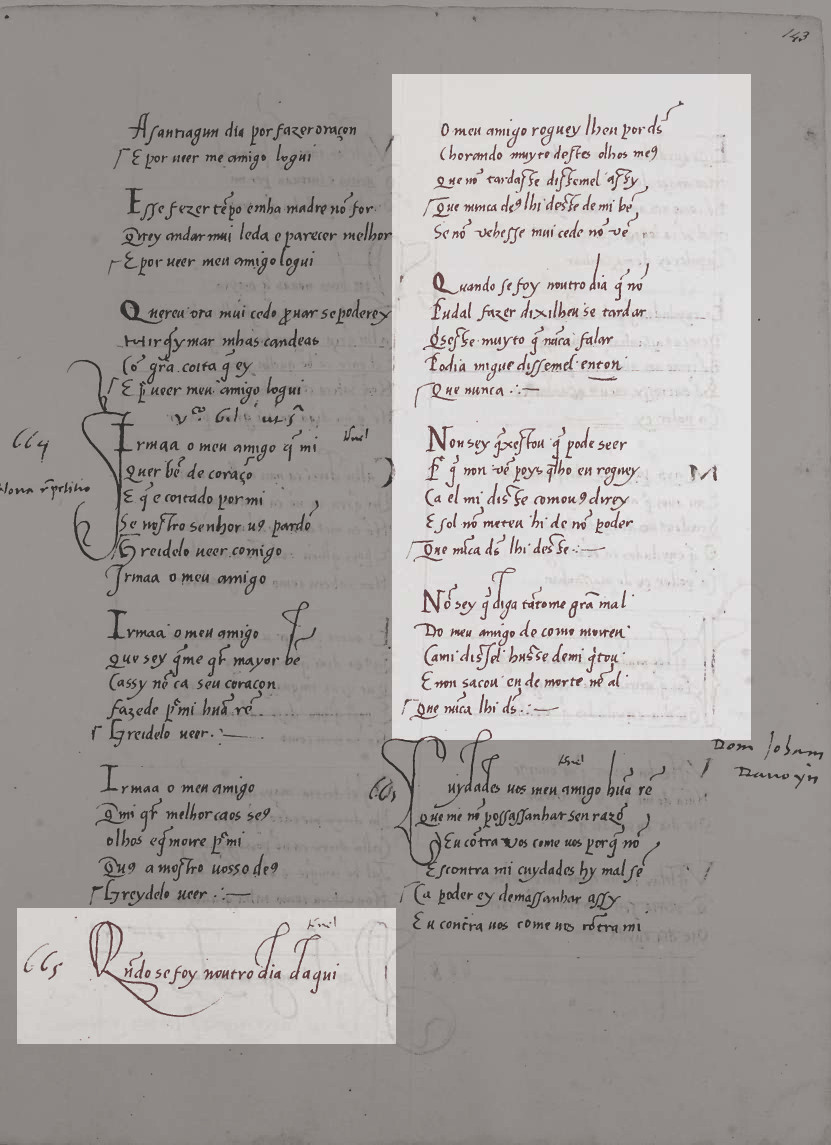 143
A santiagun dia por fazer oraçon
E por ueer meu amigo logui
Esse fezer tẽpo e mha madre nõ for
Querey andar mui leda e parecer melhor
E por ueer meu amigo logui
Quereu ora mui cedo ꝓuar se poderey
hir q̃ymar mhas candeas
Cõ grã coita q̃ ey
E p̃ ueer meu amigo logui
664
Irmaa o meu amigo q̃ mi
Quer bẽ de coraço
E q̃ e coitado por mi
Se nostro senhor uꝯ pardõ
Treidelo ueer comigo
Irmaa o meu amigo
Irmaa o meu amigo
Que sey q̃ me qr̃ mayor bẽ
Cassy nõ ca seu coraçon
fazede p̃ mi hũa rẽ
Treidelo ueer
Irmaa o meu amigo
Q̃ mi qr̃ melhor caos seꝯ
olhos e q̃ moire p̃ mi
Q̃ uꝯ a mostro uosso deꝯ
Treydelo ueer
665
Quãdo se foy noutro dia daqui
O meu amigo roguey lheu por ds̃
Chorando muyto destes olhos meꝯ
Que nõ tardasse dissemel assy
Que nunca deꝯ lhi desse de mi bẽ
Se nõ vehesse mui cede nõ vẽ
Quando se foy noutro dia q̃ nõ
Pudal fazer dixilheu se tardar
Q̃sesse muyto q̃ nũca falar
Podia migue dissemel enton
Que nunca
Non sey q̃xestou q̃ pode seer
P̃ q̃ non vẽ poys q̃lho eu roguey
Ca el mi disse como uꝯ direy
E sol nõ meteu hi de nõ poder
Que nũca ds̃ lhi desse
Nõ sey q̃ diga tãtome grã mal
Do meu amigo de como morreu
Cami dissel husse demi q̃tou
E non sacou en de morte nẽ al
Que nũca lhi ds̃
M
Dom Joham
Davoyn
Cuydades uos meu amigo hũa rẽ
Que me nõ possassanhar sen razõ
Eu cõtra uos come uos porq̃ nõ
Escontra mi cuydades hy mal sẽ
Ca poder ey demassanhar assy
Eu contra uos come uos cõtra mi